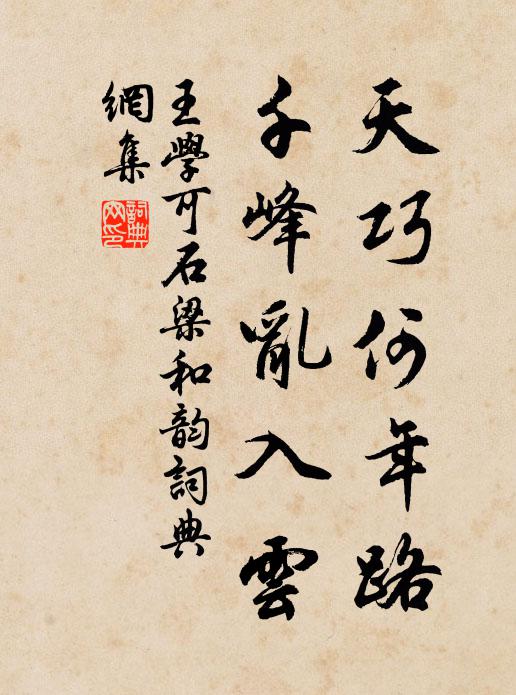 天巧何年路
千峰亂入雲
王學可石梁和韵詞典
網集
詞典
网印